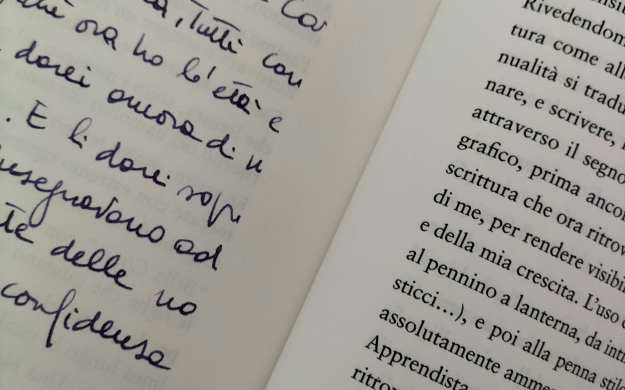 ora ho l'età e
darei ancora di
. E li darei
insegnavano ad
delle no
confidenza
Rivedendom
tura come all
nualità si tradu
nare, e scrivere,
attraverso il segno
grafico, prima ancor
scrittura che ora ritrov
di me, per rendere visibil
e della mia crescita. L'uso
al pennino a lanterna, da inti
sticci...), e poi alla penna stil
assolutamente amme
Apprendista
ritrov